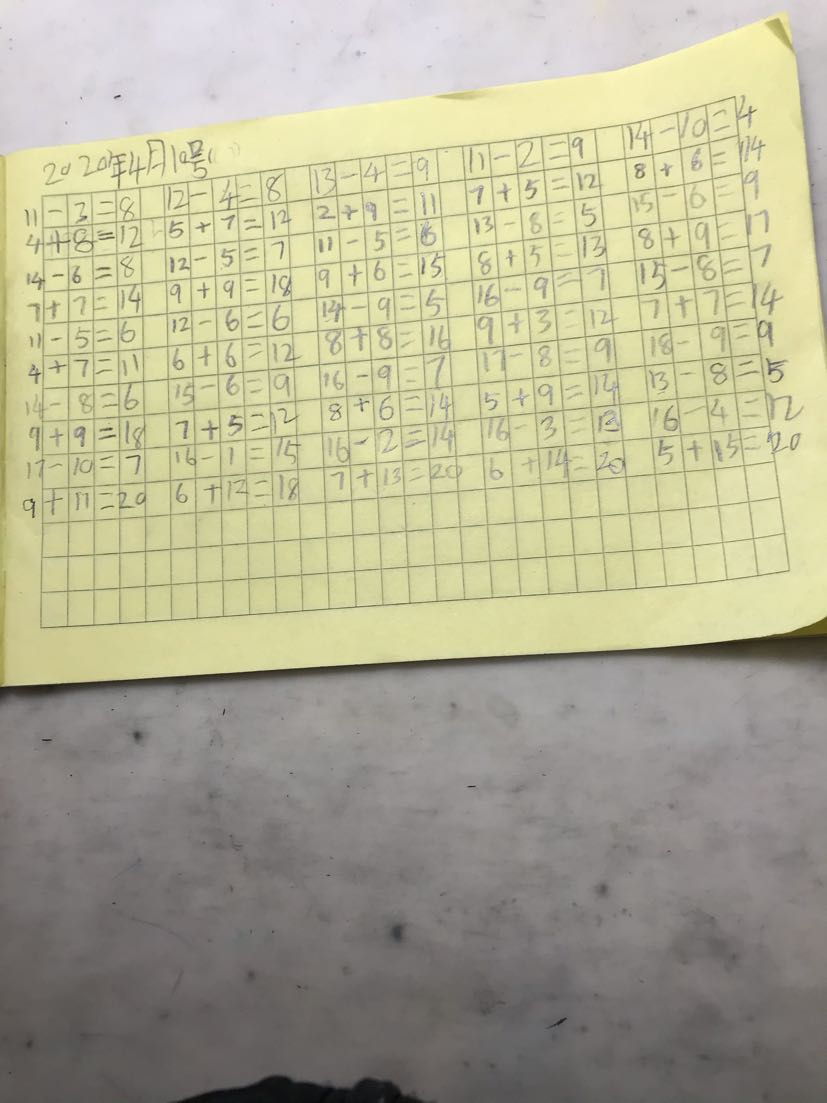 2020年4月10号
11-3=8 12-4=8 13-4=9 11-2=9 14-10=4
4+8=12 5+7=12 2+9=11 7+5=12 8+6=14
14-6=8 12-5=7 11-5=6 13-8=5 15-6=9
7+7=14 9+9=18 9+6=15 8+5=13 8+9=17
11-5=6 12-6=6 14-9=5 16-9=7 15-8=7
4+7=11 6+6=12 8+8=16 9+3=12 7+7=14
14-8=6 15-6=9 16-9=7 17-8=9 18-9=9
9+9=18 7+5=12 8+6=14 5+9=14 13-8=5
17-10=7 16-1=15 16-2=14 16-3=13 16-4=12
9+11=20 6+12=18 7+13=20 6+14=20 5+15=20